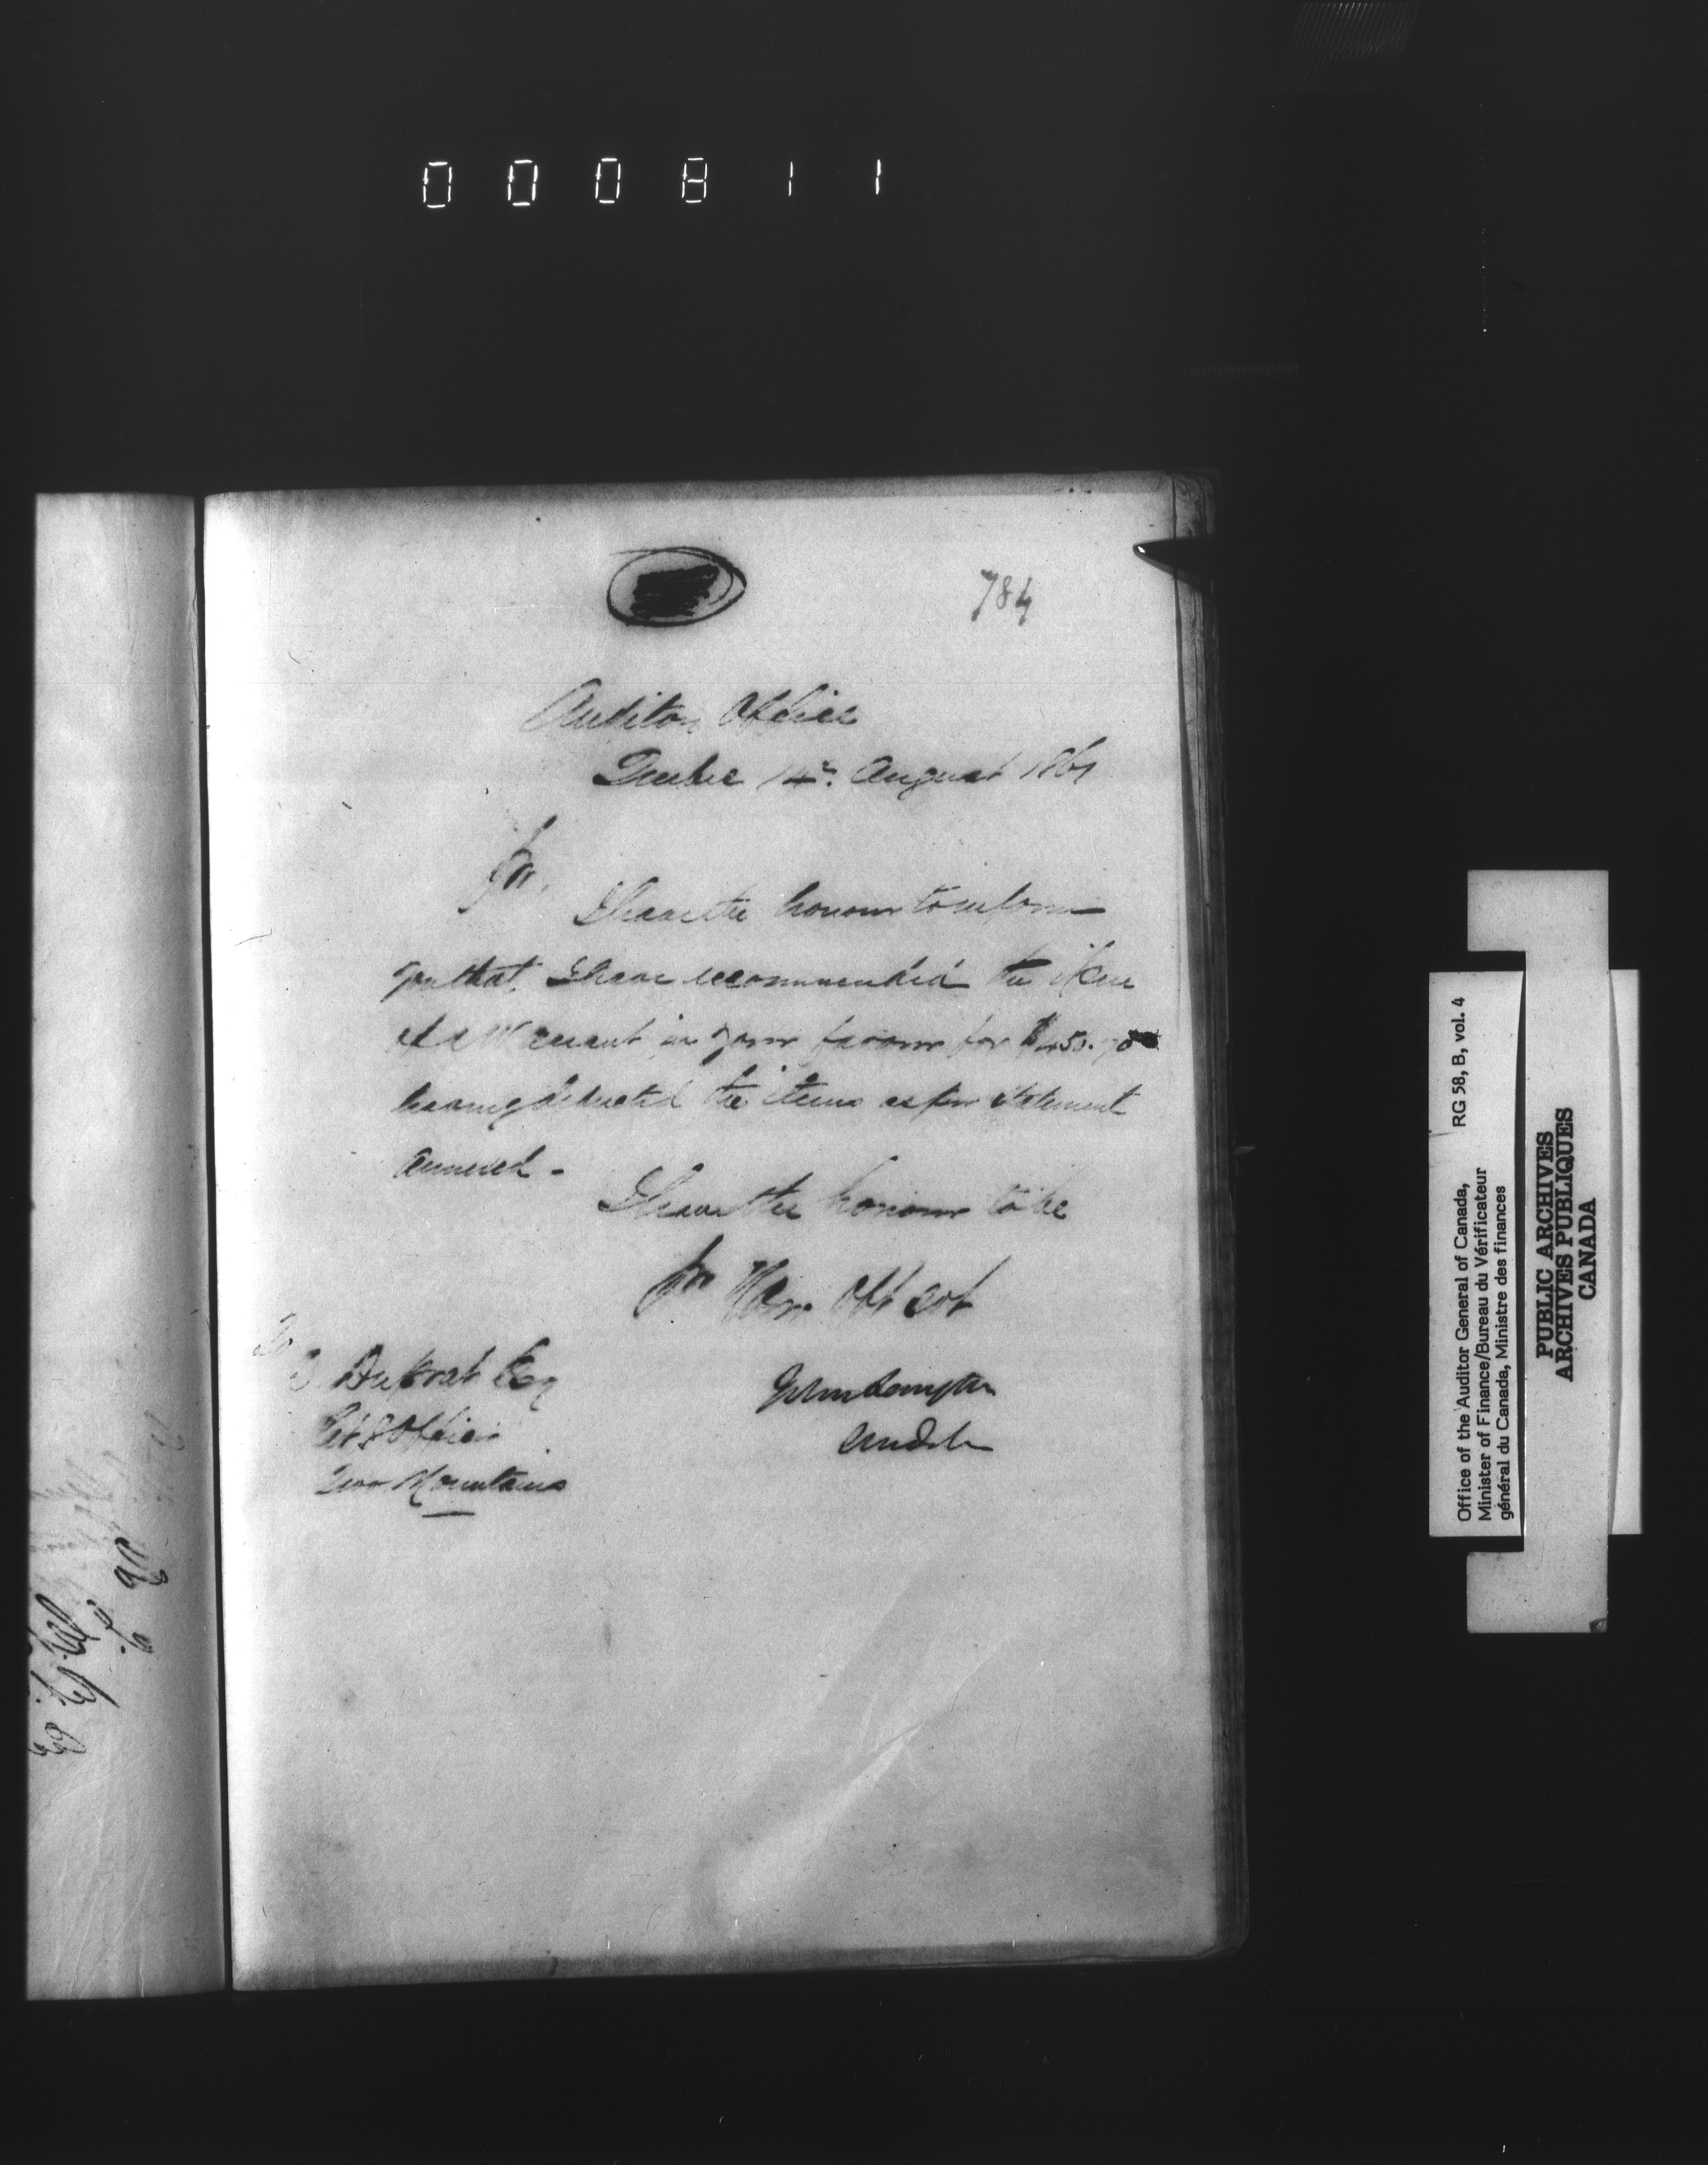 000811
784
Auditor Office
Quebec 14th August 1861
Sir,
I have the honour to inform
you that I have recommended the issue
of a Warrant in your favour for
having deducted the items as per statement
annexed -
I have the honour to be
Sir Your Obt Svt
John Langton
Auditor
To
Esq
Officer
Two Mountains
Office of the Auditor General of Canada, RG 58, B, vol. 4
Minister of Finance/Bureau du Vérificateur
général du Canada, Ministre des finances
PUBLIC ARCHIVES
ARCHIVES PUBLIQUES
CANADA